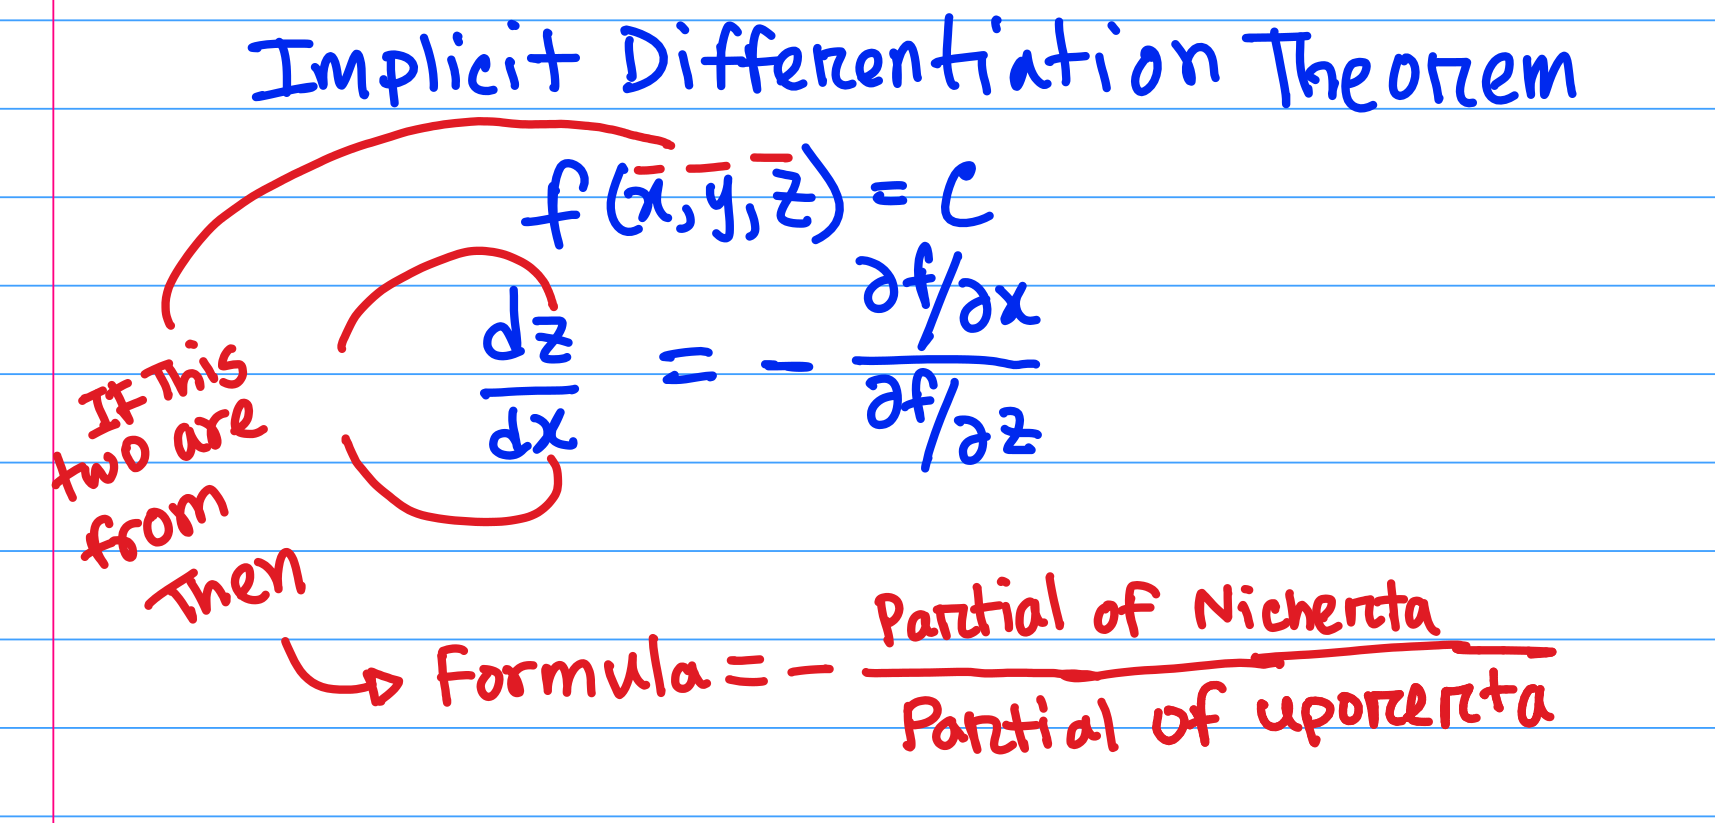 Implicit Differentiation Theorem
f(x, y, z) = C
dz/dx = - (∂f/∂x)/(∂f/∂z)
If This
two are
from
Then
Formula = - Partial of Nicherta / Partial of uporerta